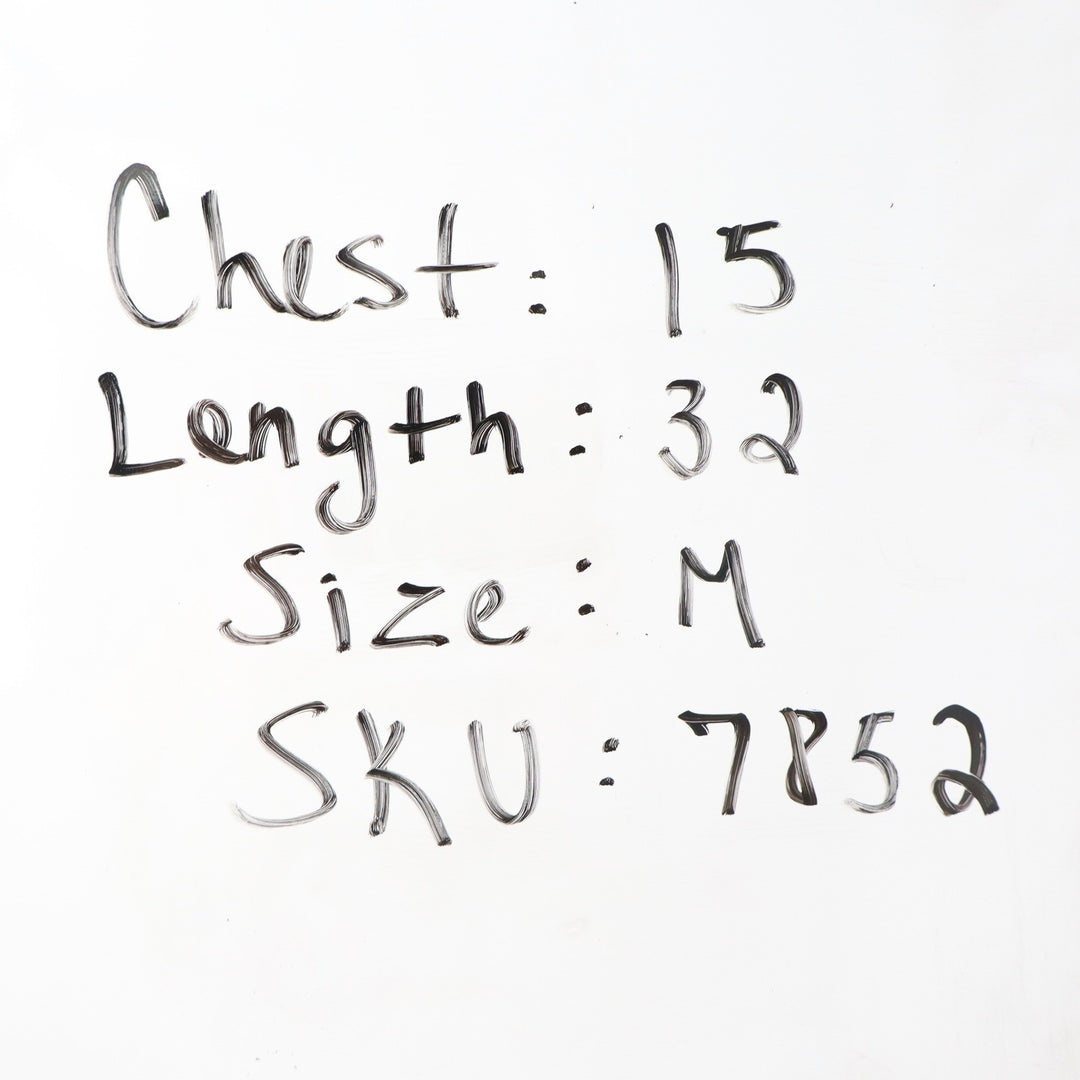 Chest: 15
Length: 32
Size: M
SKU: 7852